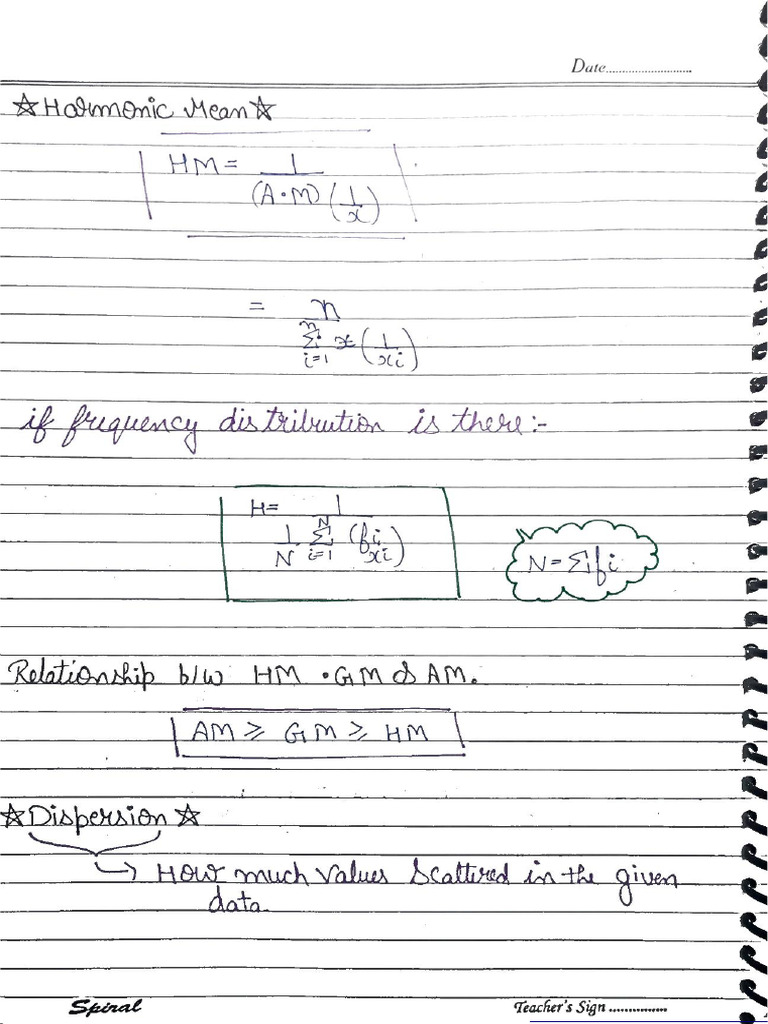 Date............................
☆ Harmonic Mean ☆
HM = 1 / (A.M) (1/x)
= n / Σ_{i=1}^{n} (1/xi)
if frequency distribution is there:-
H = 1 / (1/N Σ_{i=1}^{N} (fi/xi))
N = Σfi
Relationship b/w HM . GM & AM.
AM ⩾ GM ⩾ HM
☆ Dispersion ☆
↪ How much values scattered in the given
data.
Spiral
Teacher's Sign ................